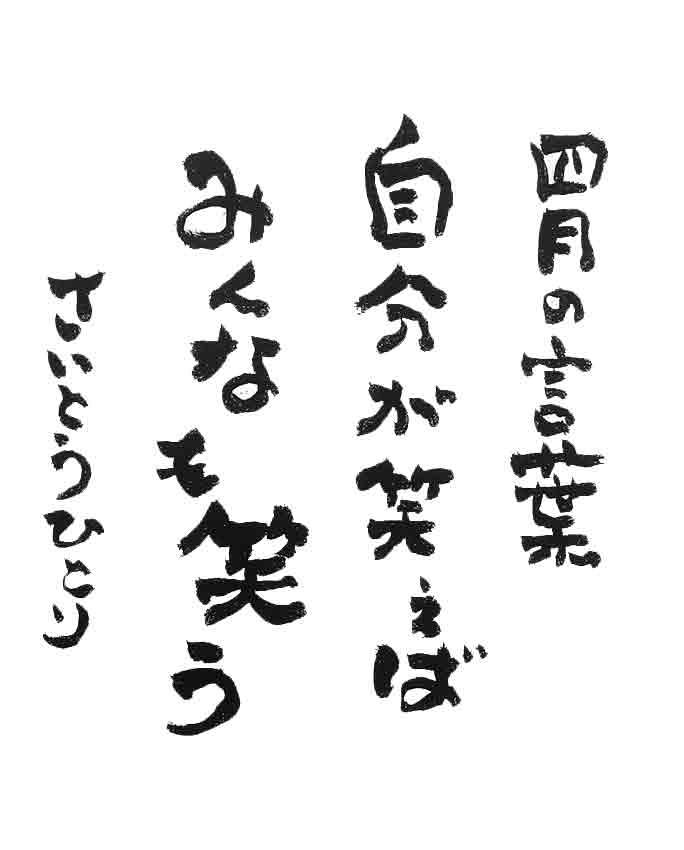 四月の言葉
自分が笑えば
みんなも笑う
さいとうひとり